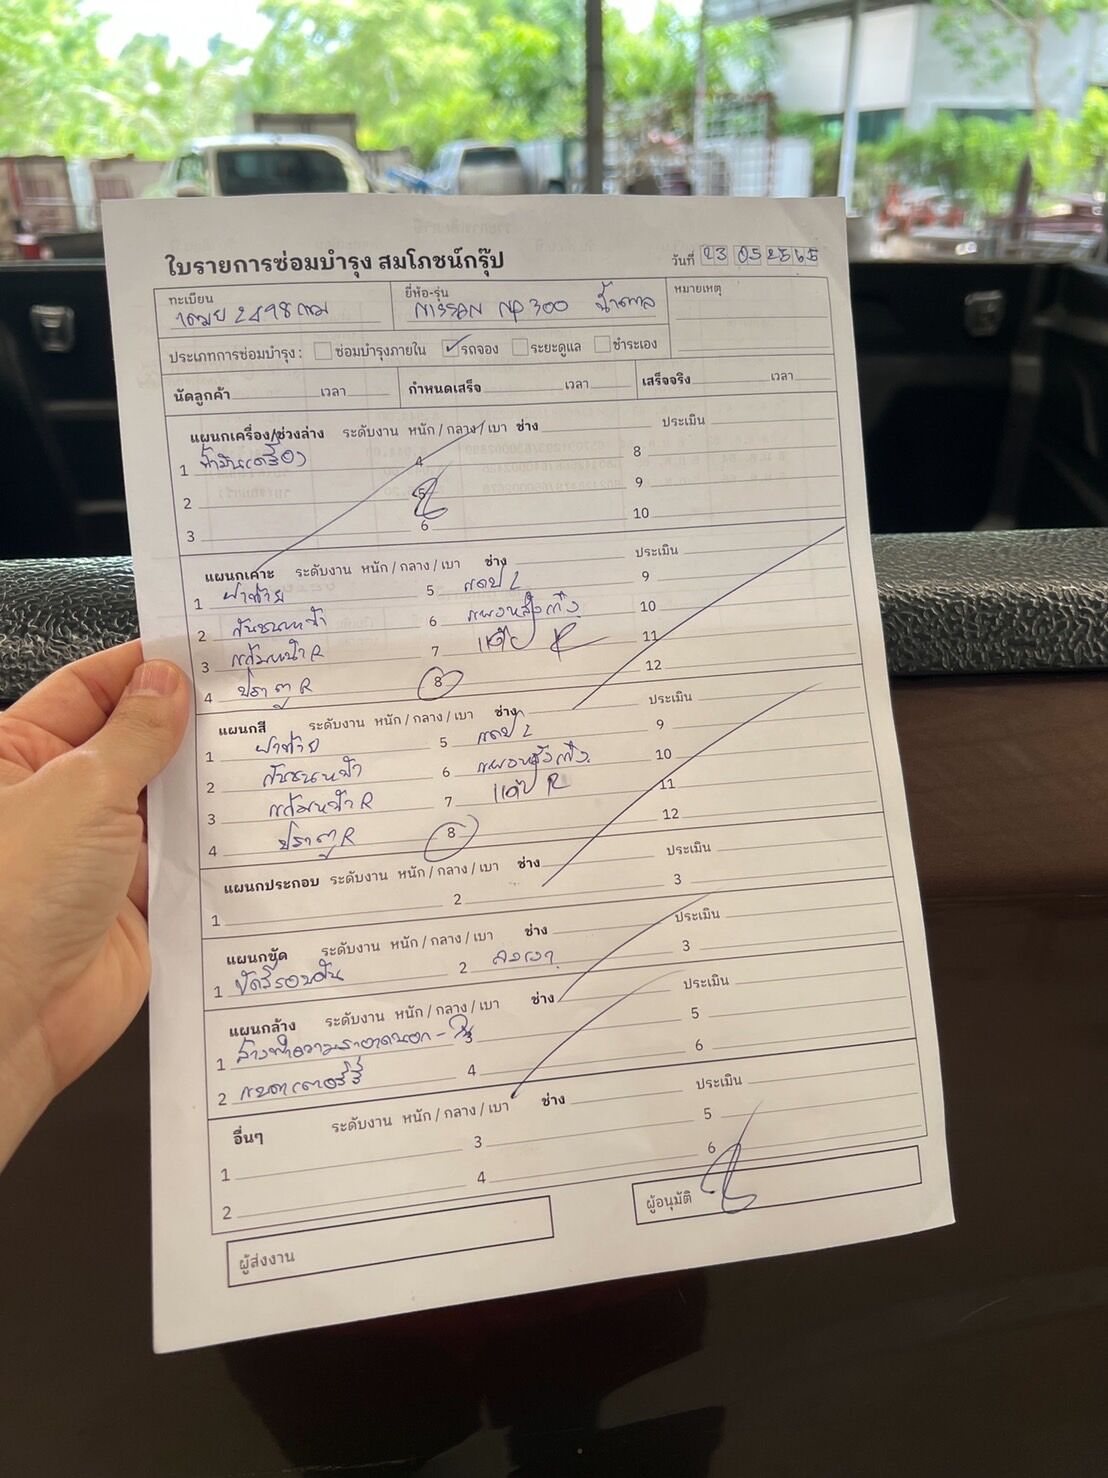 ใบรายการซ่อมบำรุง สมโภชน์กรุ๊ป
วันที่ 23 05 2565
ทะเบียน
2498 กม
ยี่ห้อ-รุ่น
NISSAN NP 300 น้ำตาล
หมายเหตุ
ประเภทการซ่อมบำรุง : ซ่อมบำรุงภายใน รถจอง ระยะดูแล ชำระเอง
นัดลูกค้า เวลา กำหนดเสร็จ เวลา เสร็จจริง เวลา
แผนกเครื่อง/ช่วงล่าง ระดับงาน หนัก / กลาง / เบา ช่าง ประเมิน
1 4 8
2 5 9
3 6 10
แผนกเคาะ ระดับงาน หนัก / กลาง / เบา ช่าง ประเมิน
1 ฝาท้าย 5 แคป L 9
2 กันชนหน้า 6 แผงหลังเก๋ง 10
3 แก้มหน้า R 7 แค๊ป R 11
4 ประตู R 8 12
แผนกสี ระดับงาน หนัก / กลาง / เบา ช่าง
1 ฝาท้าย 5 แคป L 9
2 กันชนหน้า 6 แผงหลังเก๋ง 10
3 แก้มหน้า R 7 แค๊ป R 11
4 ประตู R 8 12
แผนกประกอบ ระดับงาน หนัก / กลาง / เบา ช่าง ประเมิน
1 2 3
แผนกขัด ระดับงาน หนัก / กลาง / เบา ช่าง ประเมิน
1 ขัดสีรอบคัน 2 ลงเงา 3
แผนกล้าง ระดับงาน หนัก / กลาง / เบา ช่าง ประเมิน
1 ล้างทำความสะอาดนอก - ใน 3 5
2 แบตเตอรี่ 4 6
อื่นๆ ระดับงาน หนัก / กลาง / เบา ช่าง ประเมิน
1 3 5
2 4 6
ผู้ส่งงาน
ผู้อนุมัติ